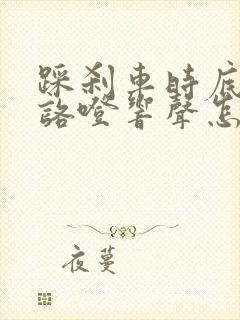 踩剎車時底
咯噔響聲怎
夜蔓